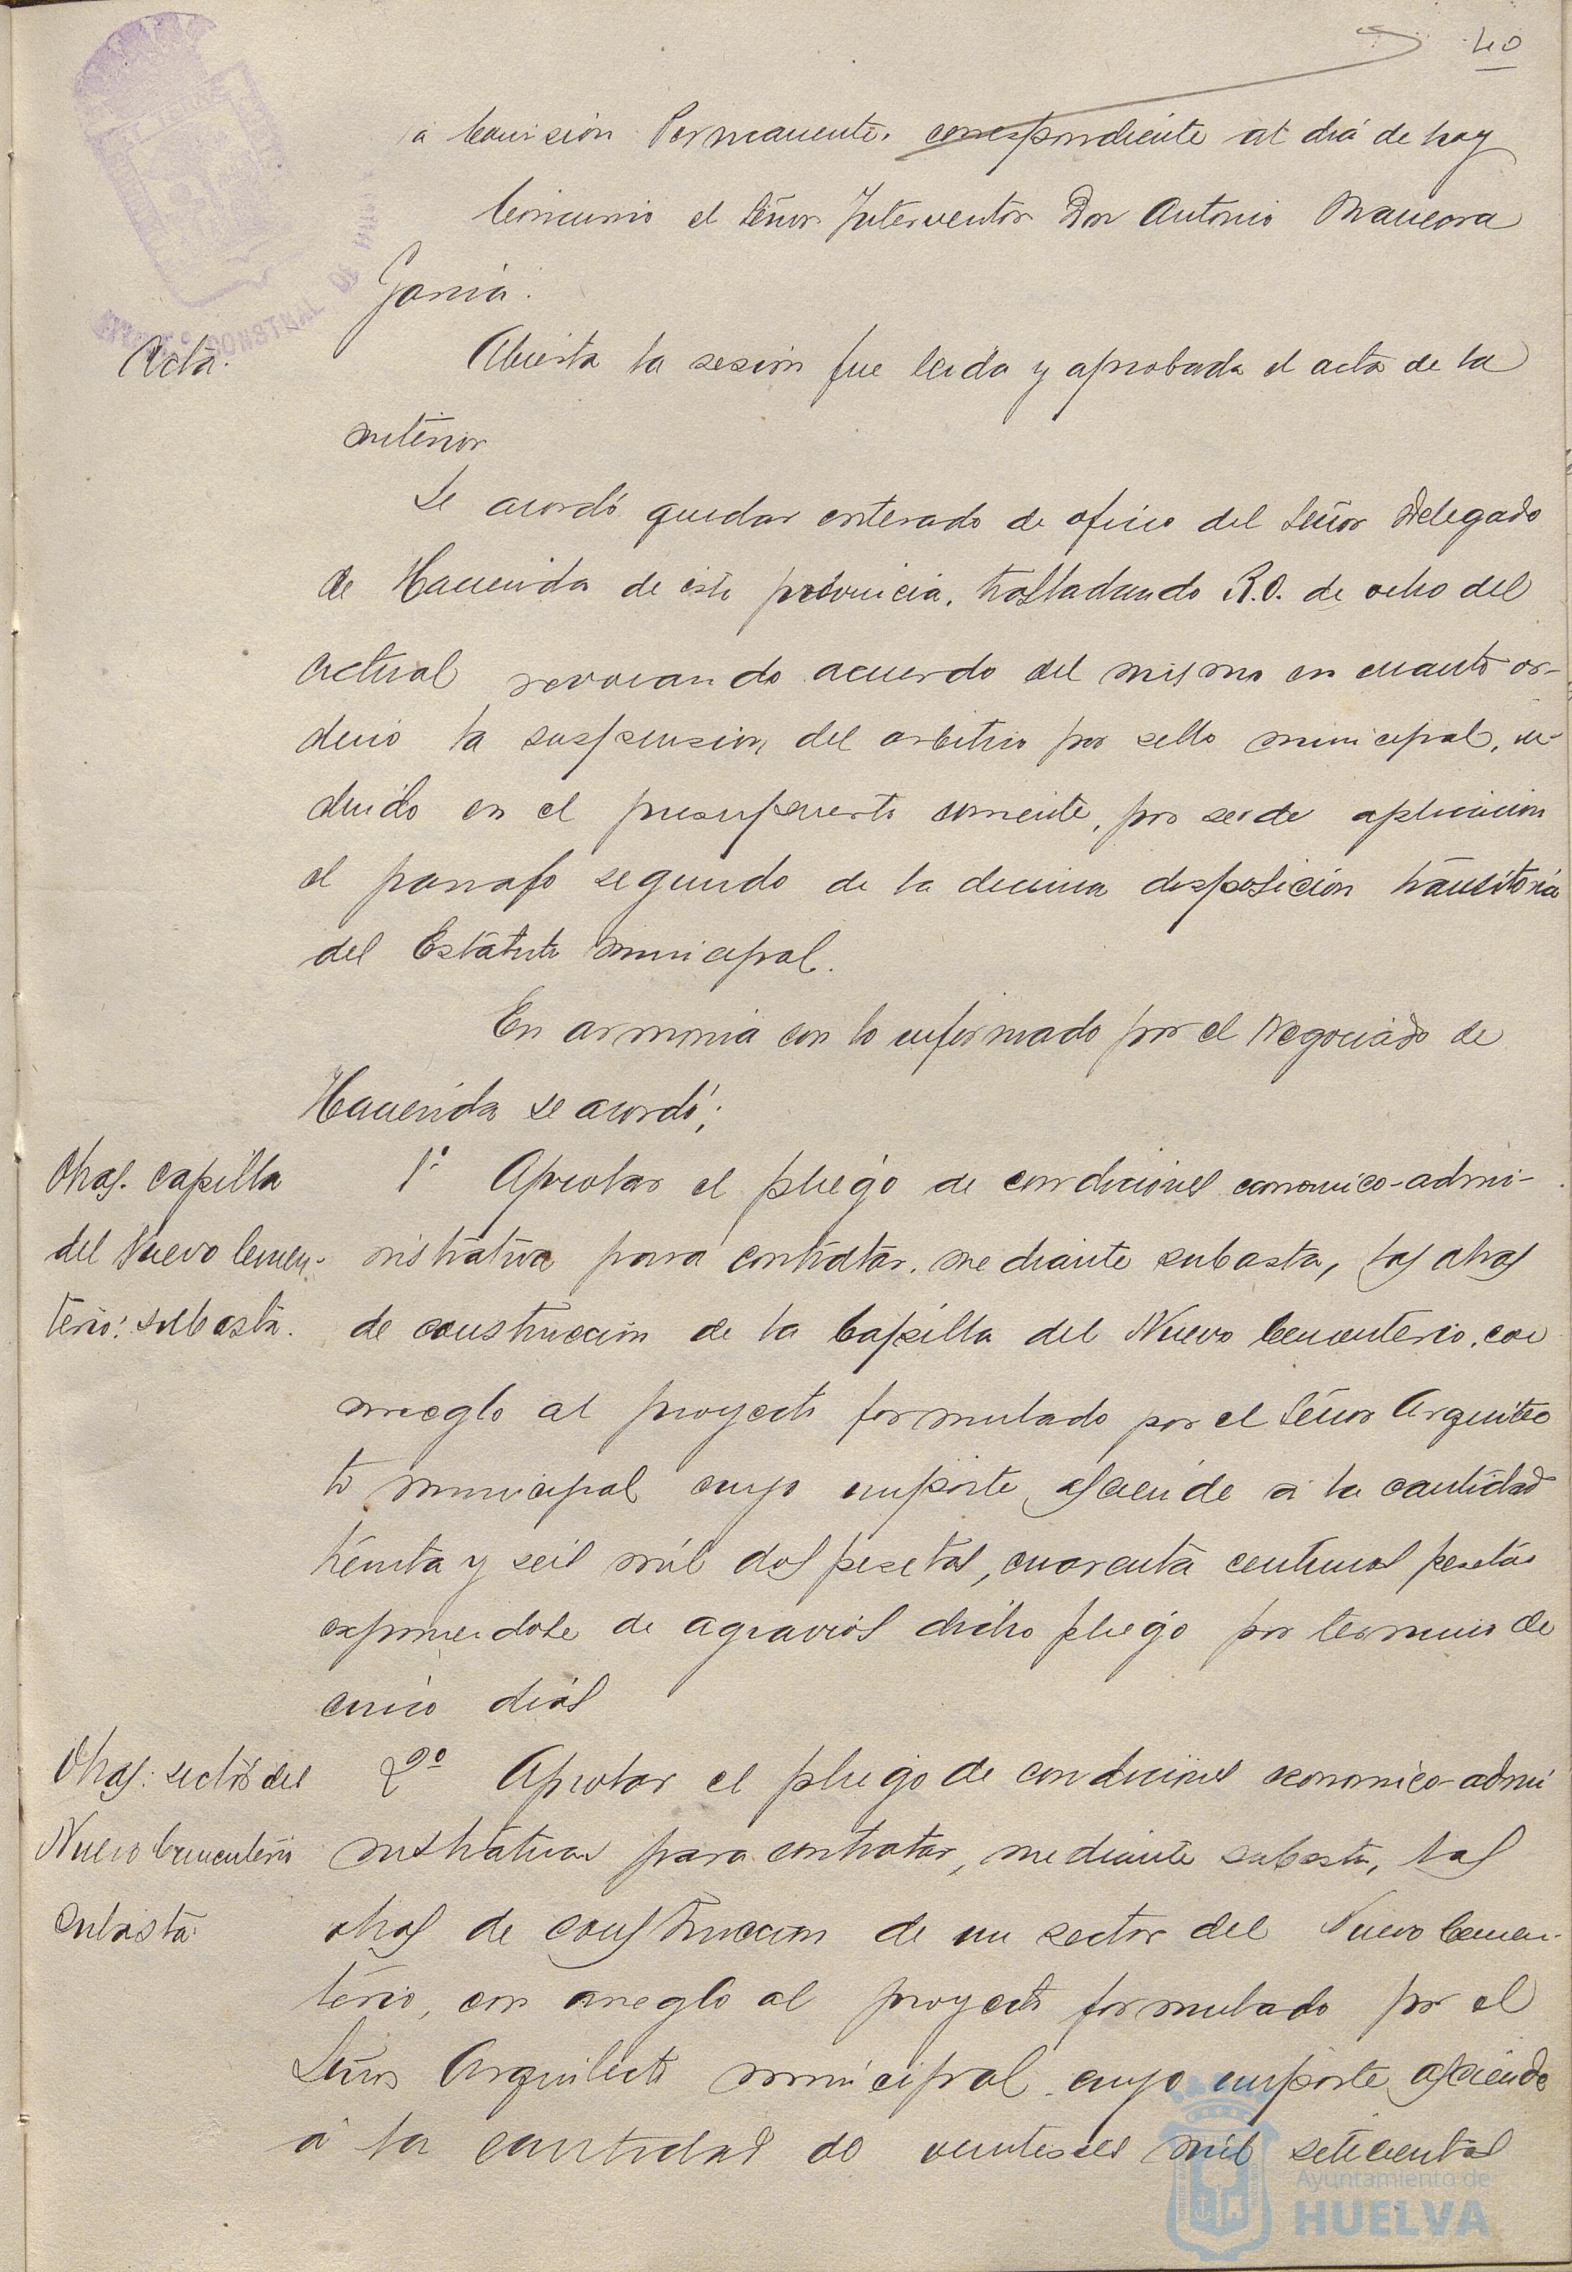 40
a Comisión Permanente, correspondiente al dia de hoy
Concurrio el Señor Interventor Don Antonio
Garcia.
Acta.
Abierta la sesion fue leida y aprobada el acta de la
anterior
Se acordó quedar enterado de oficio del Señor Delegado
de Hacienda de esta provincia, trasladando R.O. de ocho del
actual revocando acuerdo del mismo en cuanto or-
denó la suspension del arbitrio por sello municipal, in-
cluido en el presupuesto corriente, por ser de aplicacion
el parrafo segundo de la decima disposicion transitoria
del Estatuto municipal.
En armonia con lo informado por el Negociado de
Hacienda se acordó;
Obras. Capilla
del Nuevo Cemen-
terio: subasta.
1º Aprobar el pliego de condiciones economico-admi-
nistrativa para contratar, mediante subasta, las obras
de construccion de la Capilla del Nuevo Cementerio, con
arreglo al proyecto formulado por el Señor Arquitec
to municipal cuyo importe asciende a la cantidad
treinta y seis mil dos pesetas, cuarenta centimos pesetas
exponiendose de agravios dicho pliego por termino de
cinco dias
Obras: sector del
Nuevo Cementerio
subasta.
2º Aprobar el pliego de condiciones economico-admi
nistrativas para contratar, mediante subasta, las
obras de construccion de un sector del Nuevo Cemen-
terio, con arreglo al proyecto formulado por el
Señor Arquitecto municipal cuyo importe asciende
a la cantidad de veintiseis mil setecientas
Ayuntamiento de
HUELVA